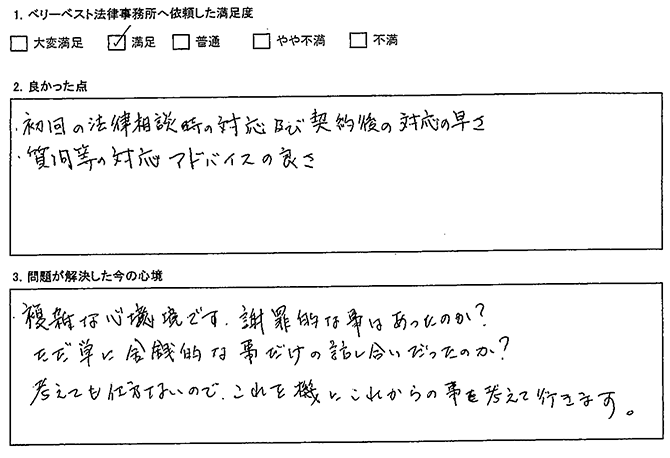 1. ベリーベスト法律事務所へ依頼した満足度
大変満足 満足 普通 やや不満 不満
2. 良かった点
・初回の法律相談時の対応及び契約後の対応の早さ
・質問等の対応アドバイスの良さ
3. 問題が解決した今の心境
複雑な心境です. 謝罪的な事はあったのか?
ただ単に金銭的な事だけの話し合いだったのか?
考えても仕方ないので、これを機にこれからの事を考えて行きます。